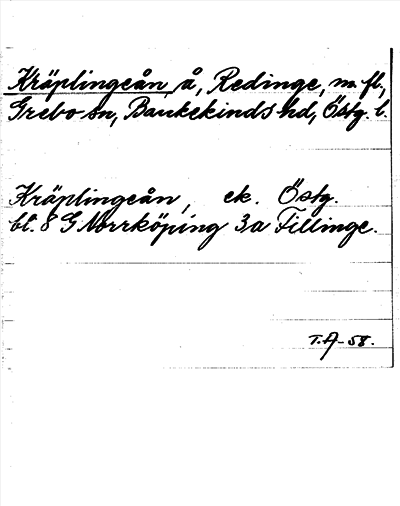 Kräplingeån, å, Redinge, m. fl.,
Grebo sn, Bankekinds hd, Östg. l.
Kräplingeån, ek. Östg.
bl. 8 G Norrköping 3a Fillinge.
T.A-58.